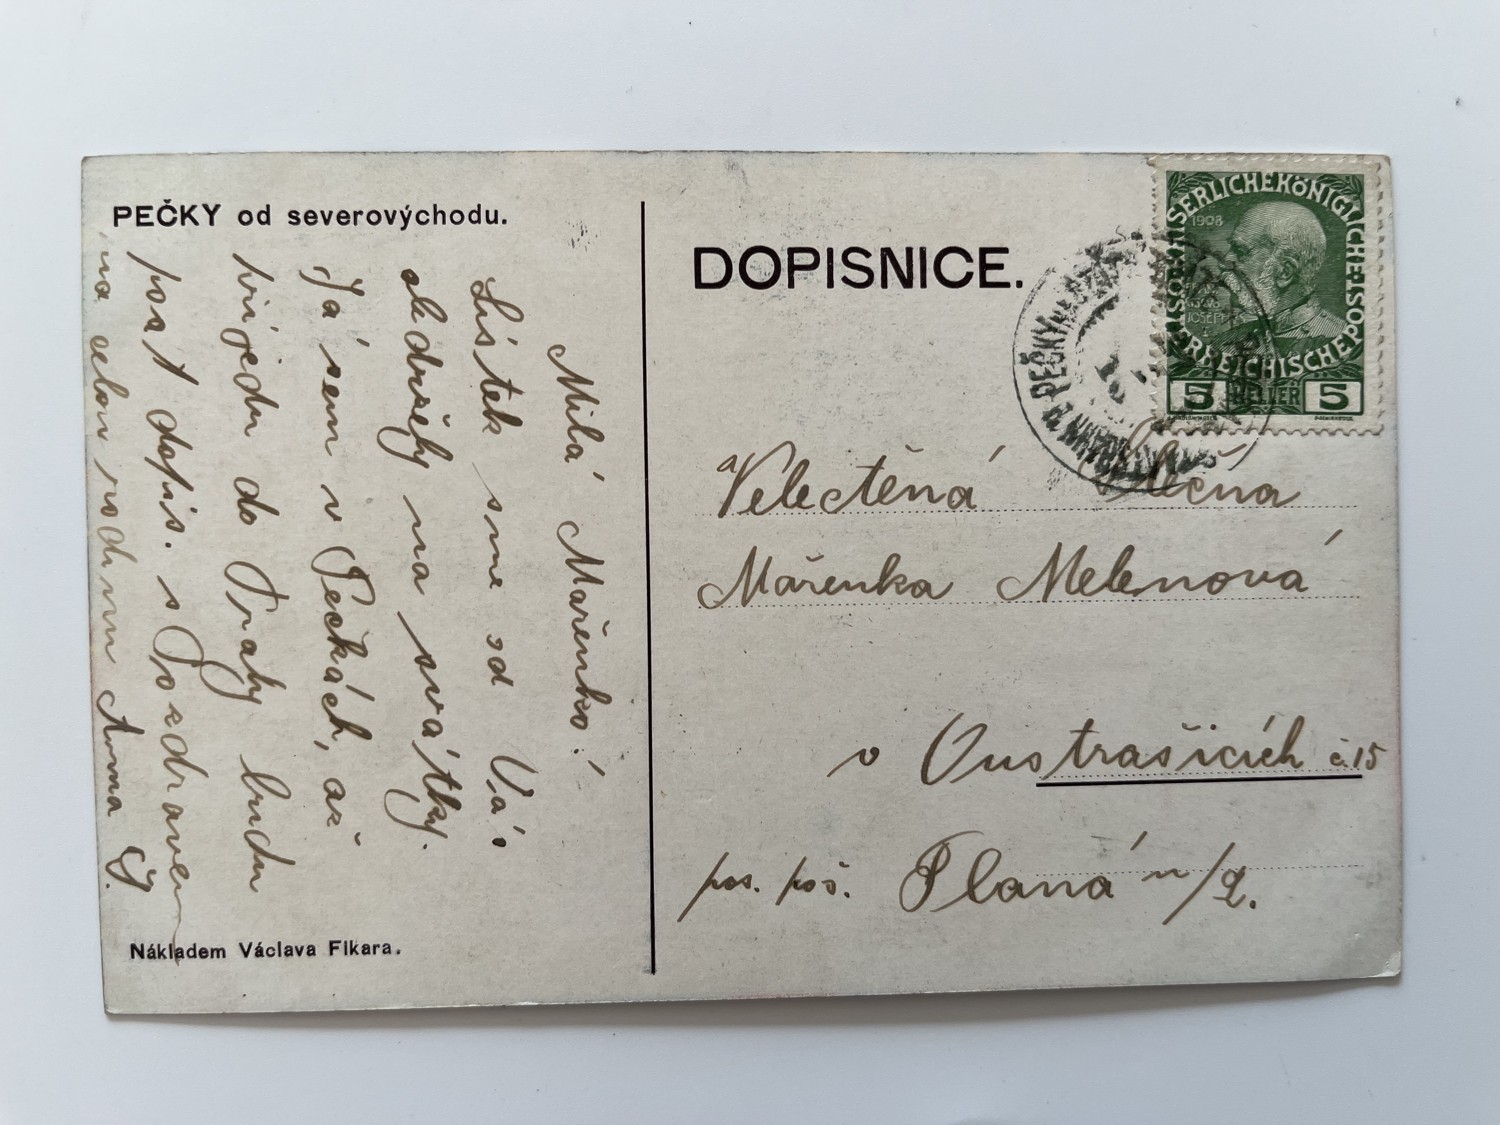 PEČKY od severovýchodu.
Milá Mařenko!
Lístek sme od Vás
obdrželi na svátky.
Já sem v Pečkách, až
přijedu do Prahy budu
psat dopis. s Pozdravem
na celou rodinu Anna
Nákladem Václava Fikara.
DOPISNICE.
KAISERLICHE KÖNIGLICHE
ÖSTERREICHISCHE POST
1908
JOSEPH I.
5 HELLER 5
PEČKY
Velectěná Slečna
Mařenka Melenová
v Oustrašicích č. 15
pos. poš. Planá n/L.